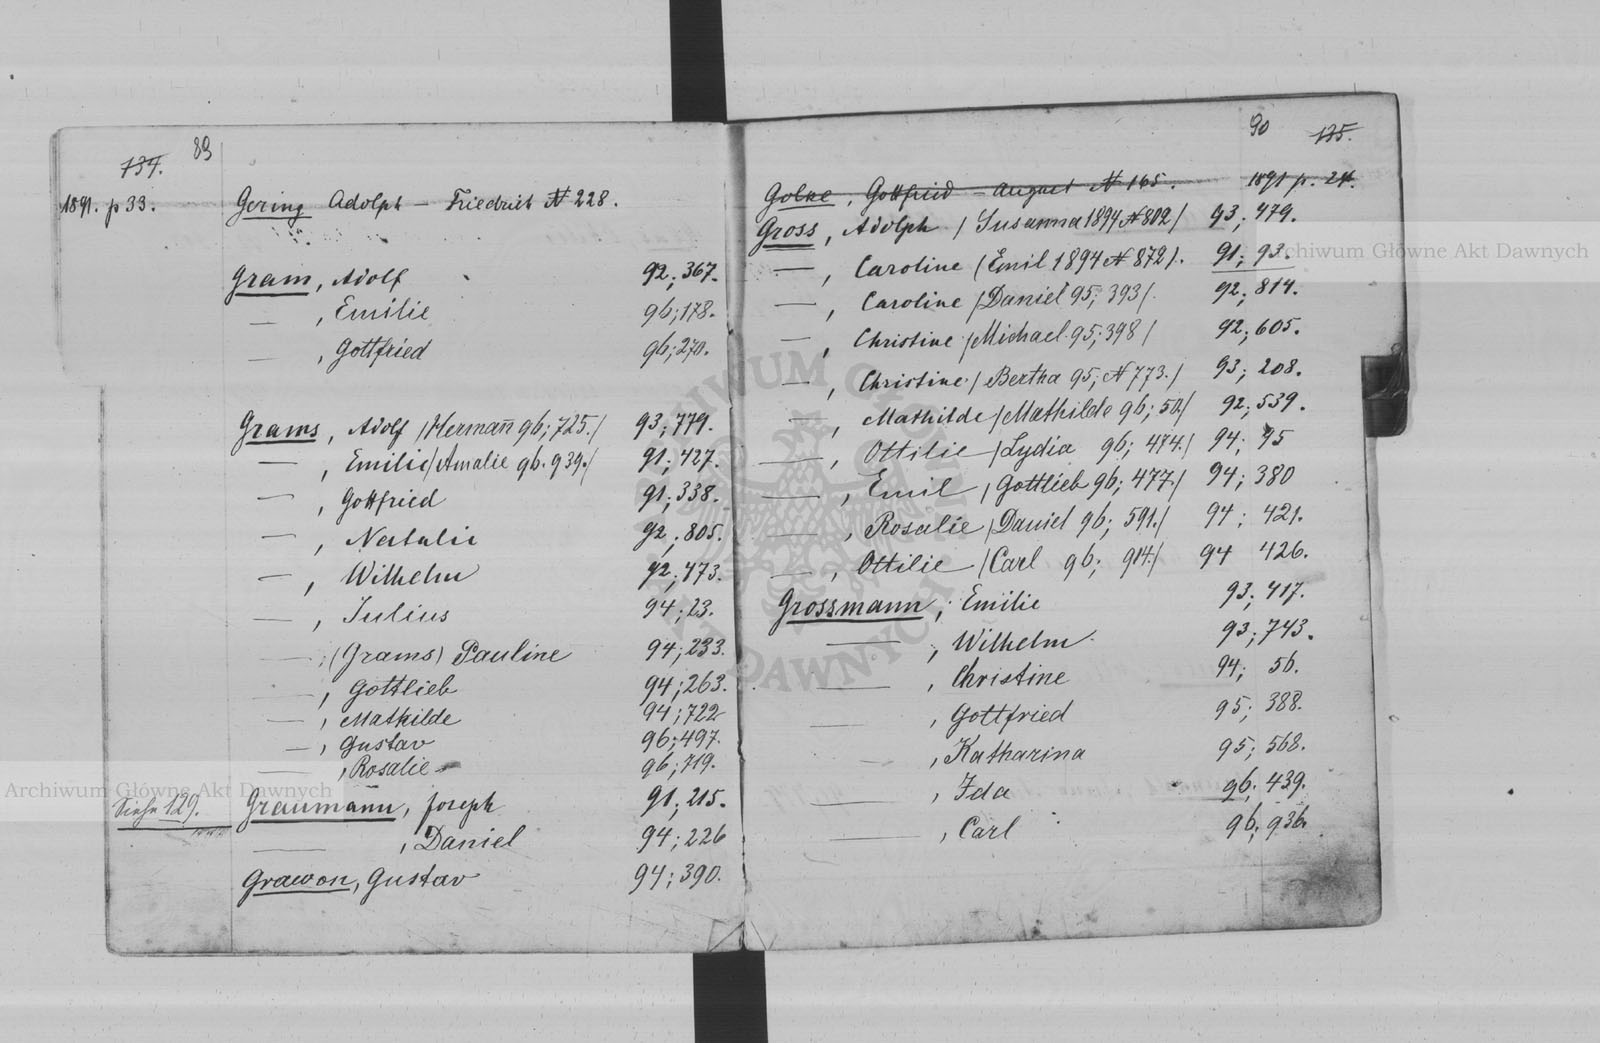 134. 89
1891. p 33. Gering Adolph — Friedrich № 228.
Gram, Adolf 92; 367.
— , Emilie 96; 178.
— , Gottfried 96; 270.
Grams, Adolf /Hermann 96; 725./ 93; 779.
— , Emilie /Amalie 96. 939./ 91; 427.
— , Gottfried 91; 338.
— , Natalie 92; 805.
— , Wilhelm 92; 473.
— , Julius 94; 23.
— ; (Grams) Pauline 94; 233.
— , Gottlieb 94; 263.
— , Mathilde 94; 722
— , Gustav 96; 497.
— , Rosalie 96; 719.
Siehe 129. Graumann, Joseph 91; 215.
— , Daniel 94; 226
Grawon, Gustav 94; 390.
90 135.
Golke, Gottfried — August № 165. 1891 p. 24.
Gross, Adolph /Susanna 1894 № 802/ 93; 479.
— , Caroline /Emil 1894 № 872/. 91; 93.
— , Caroline /Daniel 95; 393/. 92; 814.
— , Christine /Michael 95; 398/ 92; 605.
— , Christine /Bertha 95; № 773./ 93; 208.
— , Mathilde /Mathilde 96; 50/ 92; 539.
— , Ottilie /Lydia 96; 474./ 94; 95
— , Emil /Gottlieb 96; 477./ 94; 380
— , Rosalie /Daniel 96; 591./ 94; 421.
— , Ottilie /Carl 96; 914./ 94 426.
Grossmann, Emilie 93; 417.
— , Wilhelm 93; 743.
— , Christine 94; 56.
— , Gottfried 95; 388.
— , Katharina 95; 568.
— , Ida 96. 439.
— , Carl 96; 936.
Archiwum Główne Akt Dawnych
Archiwum Główne Akt Dawnych